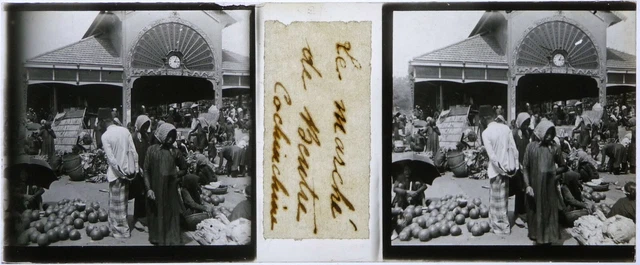 Le marché
de Bentre
Cochinchine